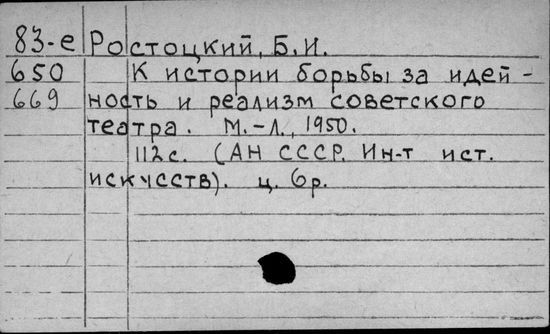 83-е Ростоцкий, Б.И.
650 К истории борьбы за идей-
669 ность и реализм советского
театра. М.-Л., 1950.
112с. (АН СССР. Ин-т ист.
искусств). ц. 6р.